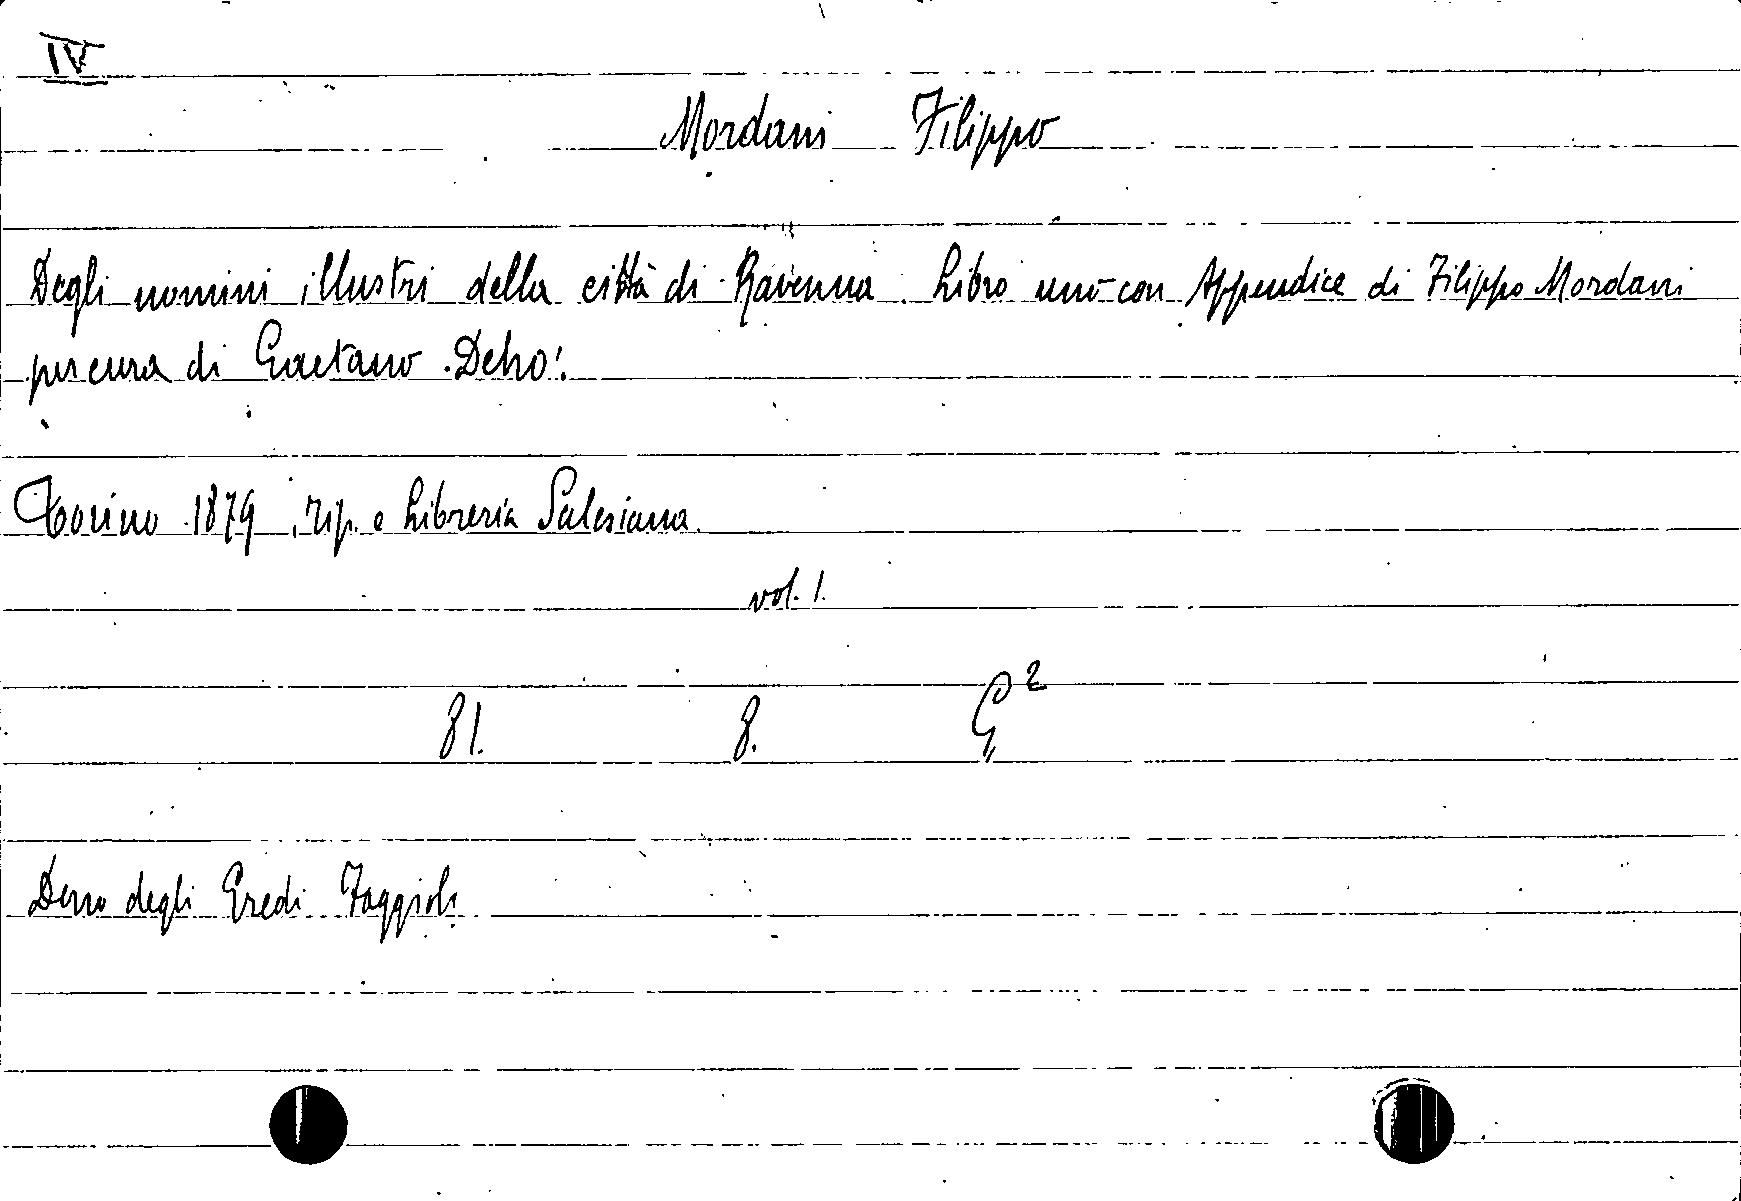 IV
Mordani Filippo
Degli uomini illustri della città di Ravenna. Libro uno con Appendice di Filippo Mordani
per cura di Gaetano Deho'.
Torino 1879, Tip. e Libreria Salesiana.
vol. 1.
81. 8. G²
Dono degli Eredi Faggioli